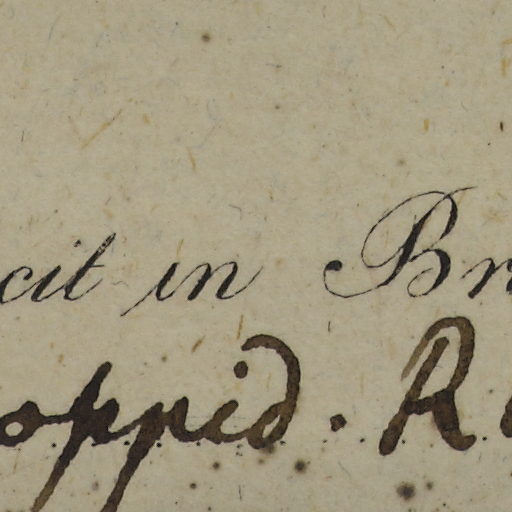 cit in Br
oppid. R